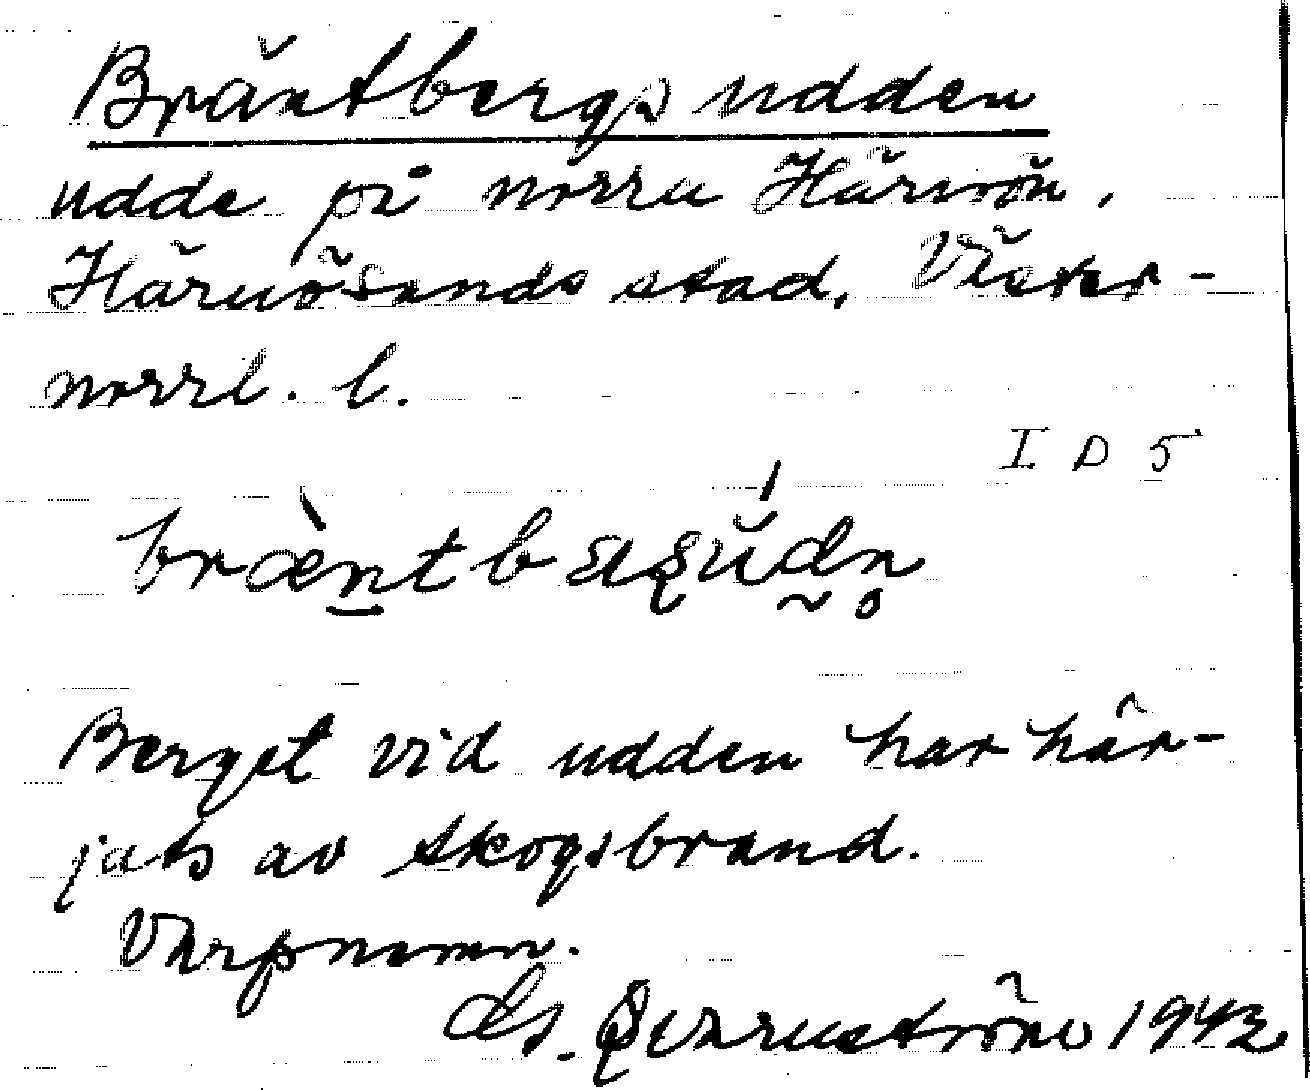 Bräntbergsudden
udde på norra Härnön,
Härnösands stad, Väster-
norrl. l.
I D 5
Berget vid udden har här-
jats av skogsbrand.
Varpnamn.
Qvarnström 1943